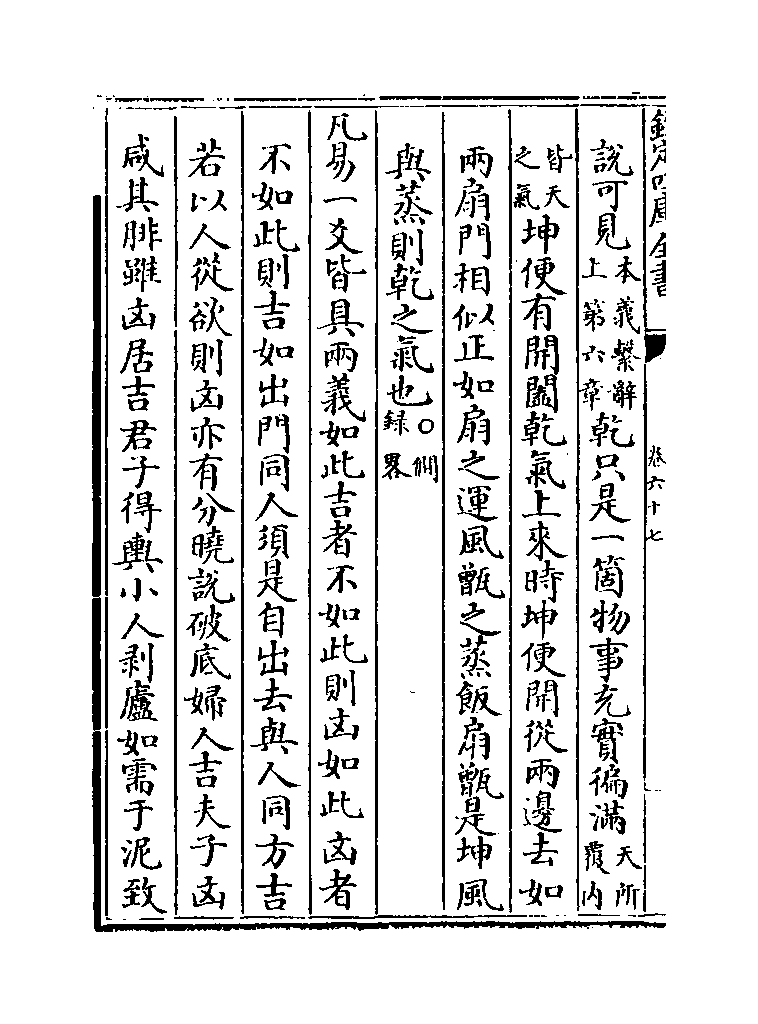 欽定四庫全書 卷六十七
說可見本義繫辭上第六章乾只是一箇物事充實徧滿天所覆内
皆天之氣坤便有開闔乾氣上來時坤便開從兩邊去如
兩扇門相似正如扇之運風甑之蒸飯扇甑是坤風
與蒸則乾之氣也○僩録畧
凡易一爻皆具兩義如此吉者不如此則凶如此凶者
不如此則吉如出門同人須是自出去與人同方吉
若以人從欲則凶亦有分曉說破底婦人吉夫子凶
咸其腓雖凶居吉君子得輿小人剥廬如需于泥致